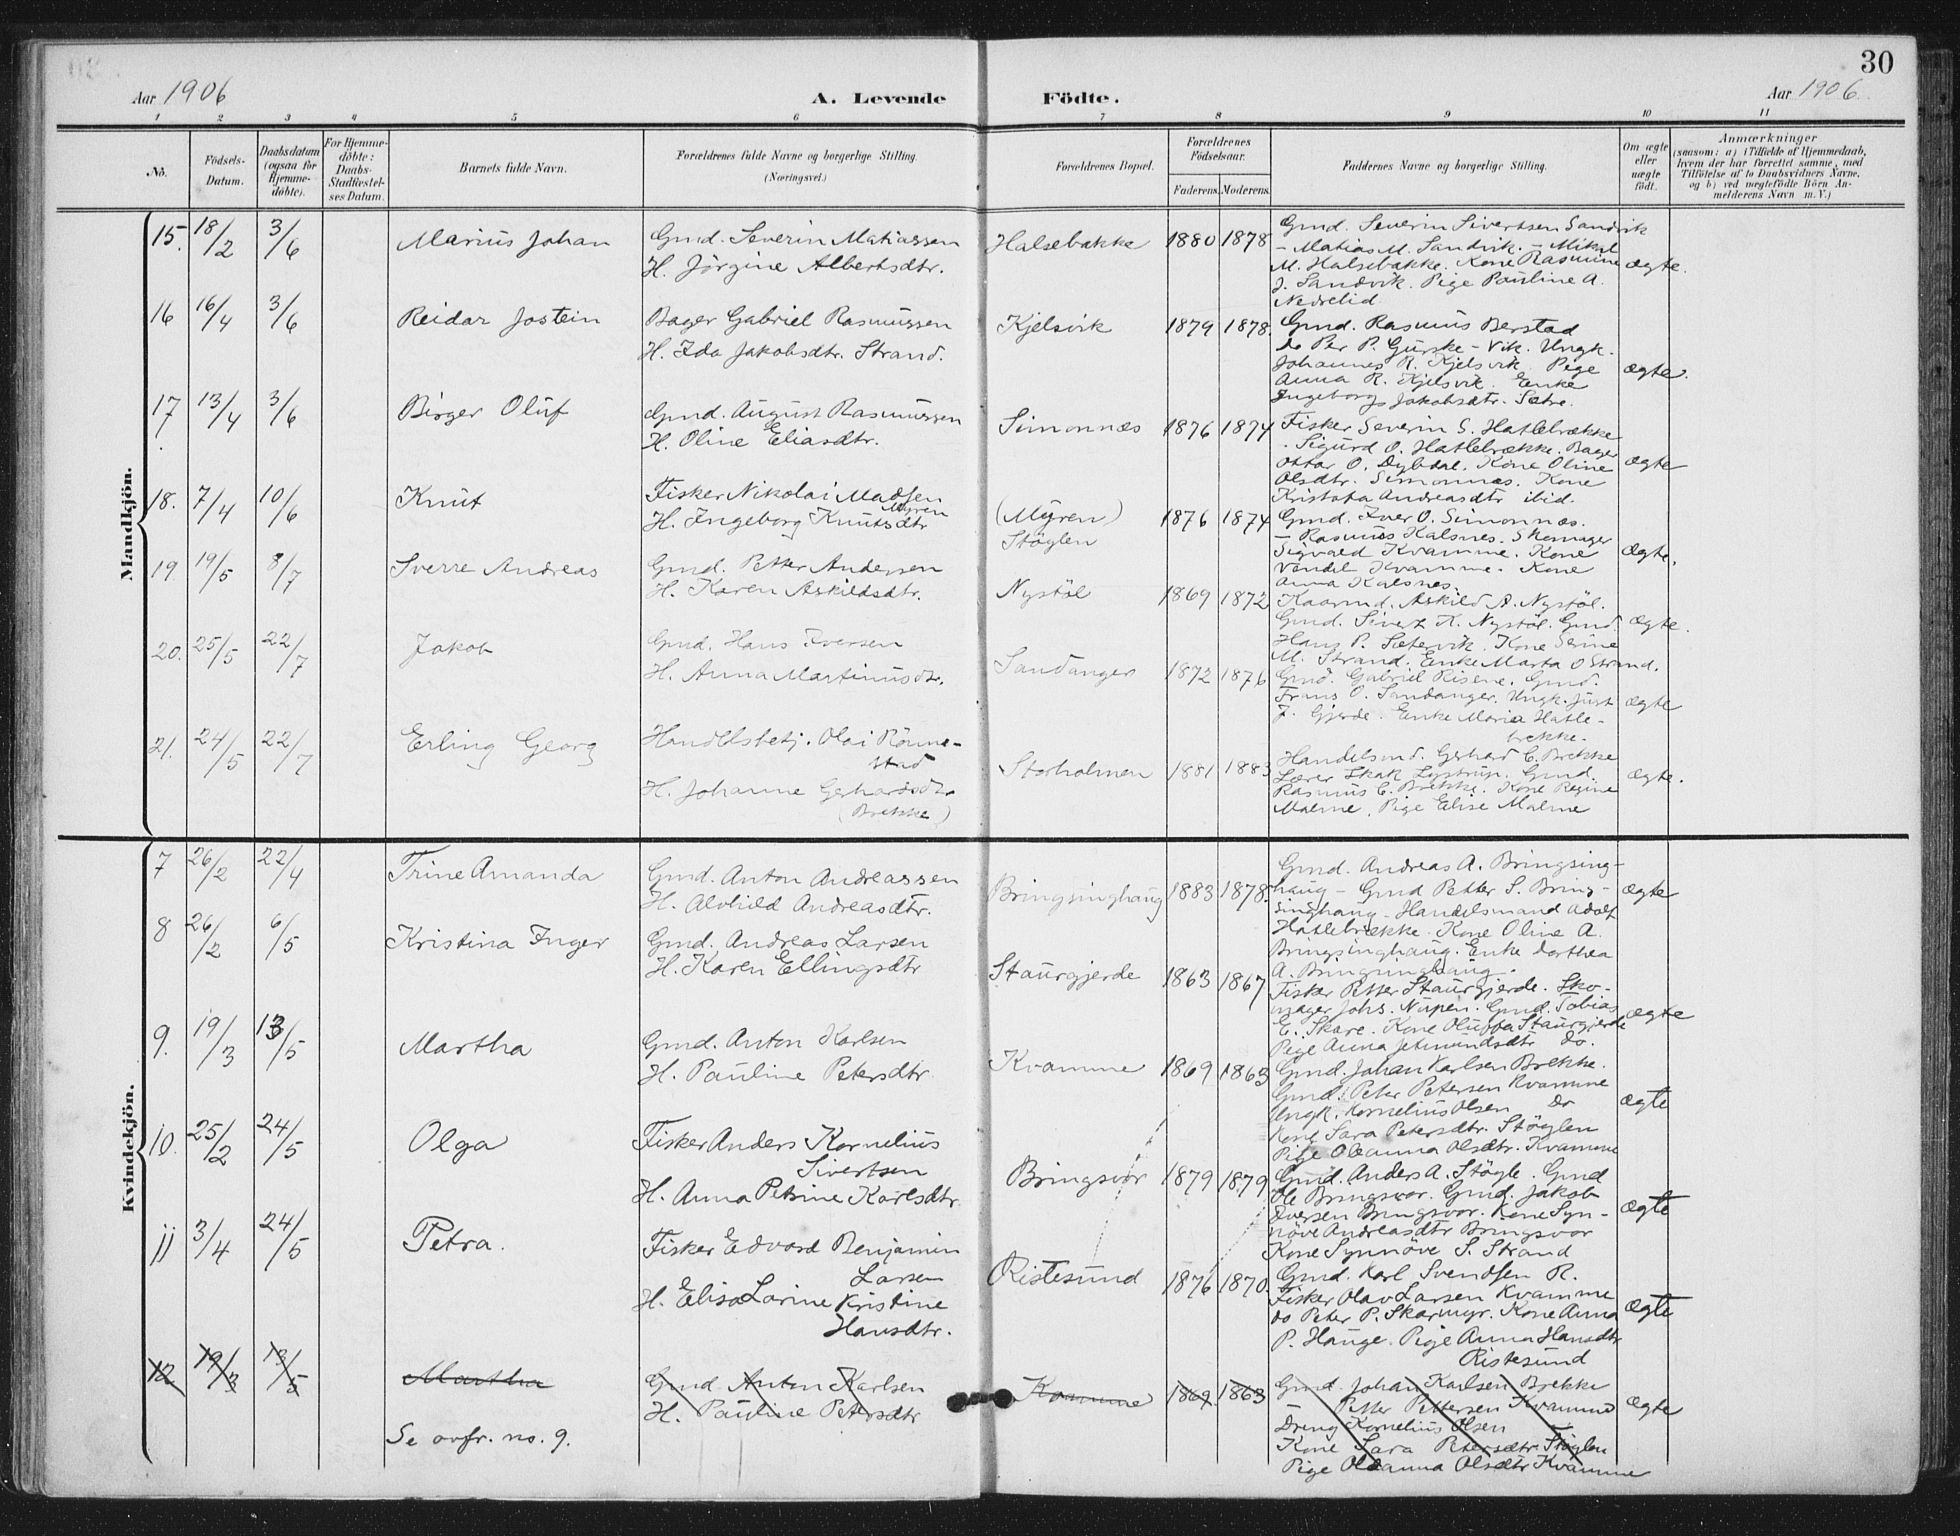 30
Aar 1906
A. Levende
Födte.
Aar 1906.
1 2 3 4 5 6 7 8 9 10 11
No.
Födsels-
Datum.
Daabsdatum
(ogsaa for
Hjemme-
döbte).
For Hjemme-
döbte:
Daabs-
Stadfæstel-
ses Datum.
Barnets fulde Navn.
Forældrenes fulde Navne og borgerlige Stilling.
(Næringsvei.)
Forældrenes Bopæl.
Forældrenes
Födselsaar.
Faderens. Moderens.
Faddernes Navne og borgerlige Stilling.
Om ægte
eller
uægte
födt.
Anmærkninger
(saasom: a) i Tilfælde af Hjemmedaab,
hvem der har forrettet samme, med
Tilföielse af to Daabsvidners Navne,
og b) ved uægtefödte Börn An-
melderens Navn m. V.)
Mandkjön.
15. 18/2 3/6 Marius Johan
Gmd. Severin Matiassen
H. Jörgine Albertsdtr.
Halsebakke 1880 1878
Gmd. Severin Sivertsen Sandvik
- Matias M. Sandvik. - Mikal
M. Halsebakke. Kone Rasmine
J. Sandvik. Pige Pauline A.
Nedrelid
ægte.
16 16/4 3/6 Reidar Jostein
Bager Gabriel Rasmussen
H. Ida Jakobsdtr. Strand.
Kjelsvik 1879 1878.
Gmd. Rasmus Berstad
do Per P. Gurske-Vik. Ungk.
Johannes R. Kjelsvik. Pige
Anna R. Kjelsvik. Enke
Ingeborg Jakobsdtr. Sætre.
ægte.
17 13/4 3/6 Birger Oluf
Gmd. August Rasmussen
H. Oline Eliasdtr.
Simonnæs 1876 1874
Fisker Severin S. Hatlebrække
. Sigurd O. Hatlebrække. Bager
Ottar O. Dybdal. Kone Oline
Olsdtr. Simonnæs. Kone
Kristofa Andreasdtr ibid.
ægte
18. 7/4 10/6 Knut
Fisker Nikolai Madsen
Myren
H. Ingeborg Knutsdtr
(Myren)
Stöylen
1876 1874
Gmd. Iver O. Simonnæs.
- Rasmus Kalsnes. Skomager
Sigvald Kvamme. Kone
Vendel Kvamme. Kone
Anna Kalsnes.
Ægte.
19. 19/5 8/7 Sverre Andreas
Gmd. Petter Andersen
H. Karen Askildsdtr.
Nystöl 1869 1872
Kaarmd. Askild A. Nystöl.
Gmd. Sivert K. Nystöl. Gmd.
Hans P. Sætervik. Kone Serine
M. Strand. Enke Marta O Strand.
ægte.
20. 25/5 22/7 Jakob
Gmd. Hans Iversen
H. Anna Martinusdtr.
Sandanger 1872 1876
Gmd. Gabriel Risene. Gmd.
Frans O. Sandanger. Ungk. Just
J. Gjerde. Enke Maria Hatle-
brekke.
ægte
21. 24/5 22/7 Erling Georg
Handelsbetj. Olai Rönne-
stad
H. Johanne Gerhardsdtr
(Brekke)
Storholmen 1881 1883
Handelsmd. Gerhard C. Brekke
Lærer Skak Lystrup. Gmd.
Rasmus C. Brekke. Kone Regine
Malme. Pige Elise Malme
ægte.
Kvindekjön.
7 26/2 22/4 Trine Amanda
Gmd. Anton Andreassen
H. Alvhild Andreasdtr.
Bringsinghaug 1883 1878.
Gmd. Andreas A. Bringsing-
haug - Gmd Petter S. Bring-
singhaug - Handelsmand Adolf
Hatlebrække. Kone Oline A.
Bringsinghaug. Enke Dorthea
A. Bringsinghaug.
ægte
8 26/2 6/5 Kristina Inger
Gmd. Andreas Larsen
H. Karen Ellingsdtr
Staurgjerde 1863 1867
Fisker Petter Staurgjerde. Sko-
mager Johs. Nupen. Gmd. Tobias
E. Skare. Kone Oluffa Staurgjerde
Pige Anna Jetmundsdtr do.
ægte
9. 19/3 13/5 Martha
Gmd. Anton Karlsen
H. Pauline Petersdtr.
Kvamme 1869 1863
Gmd. Johan Karlsen Brekke.
Gmd. Peter Petersen Kvamme
Ungk. Kornelius Olsen do
Kone Sara Petersdtr. Stöylen
Pige Oleanna Olsdtr. Kvamme
ægte
10. 25/2 24/5 Olga
Fisker Anders Kornelius
Sivertsen
H. Anna Petrine Karlsdtr.
Bringsvor 1879 1879
Gmd. Anders A. Stöyle. Gmd
Ole Bringsvor. Gmd. Jakob
Iversen Bringsvor. Kone Syn-
növe Andreasdtr Bringsvor
Kone Synnöve S. Strand
ægte
11 3/4 24/5 Petra.
Fisker Edvard Benjamin
Larsen
H. Elisa Larine Kristine
Hansdtr.
Ristesund 1876 1870.
Gmd. Karl Svendsen R.
Fisker Olav Larsen Kvamme
do Peter P. Skarmyr. Kone Anna
P. Hauge. Pige Anna Hansdtr
Ristesund
Ægte
12 19/3 13/5 Martha
Gmd. Anton Karlsen
H. Pauline Petersdtr
Kvamme 1869. 1863
Gmd. Johan Karlsen Brekke
Petter Pettersen Kvamme
Dreng Kornelius Olsen
Kone Sara Petersdtr. Stöylen
Pige Oleanna Olsdtr Kvamme
ægte
Se ovfr. no. 9.